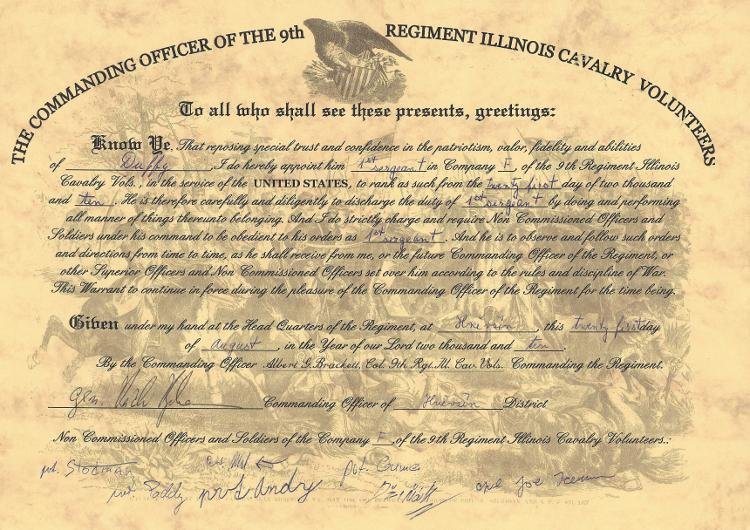 THE COMMANDING OFFICER OF THE 9th REGIMENT ILLINOIS CAVALRY VOLUNTEERS
To all who shall see these presents, greetings:
Know Ye. That reposing special trust and confidence in the patriotism, valor, fidelity and abilities
of Duffy, I do hereby appoint him 1st sergeant in Company F, of the 9th Regiment Illinois
Cavalry Vols., in the service of the UNITED STATES, to rank as such from the twenty first day of two thousand
and ten. He is therefore carefully and diligently to discharge the duty of 1st sergeant by doing and performing
all manner of things thereunto belonging. And I do strictly charge and require Non Commissioned Officers and
Soldiers under his command to be obedient to his orders as 1st sergeant. And he is to observe and follow such orders
and directions from time to time, as he shall receive from me, or the future Commanding Officer of the Regiment, or
other Superior Officers and Non Commissioned Officers set over him according to the rules and discipline of War.
This Warrant to continue in force during the pleasure of the Commanding Officer of the Regiment for the time being.
Given under my hand at the Head Quarters of the Regiment, at, this twenty first day
of august, in the Year of our Lord two thousand and ten.
By the Commanding Officer Albert G. Brackett, Col. 9th Rgt. Ill. Cav. Vols. Commanding the Regiment.
Gen. Commanding Officer of District
Non Commissioned Officers and Soldiers of the Company F, of the 9th Regiment Illinois Cavalry Volunteers.:
pvt. Stockman pvt. 
pvt. Paddy pvt. Andy Joe